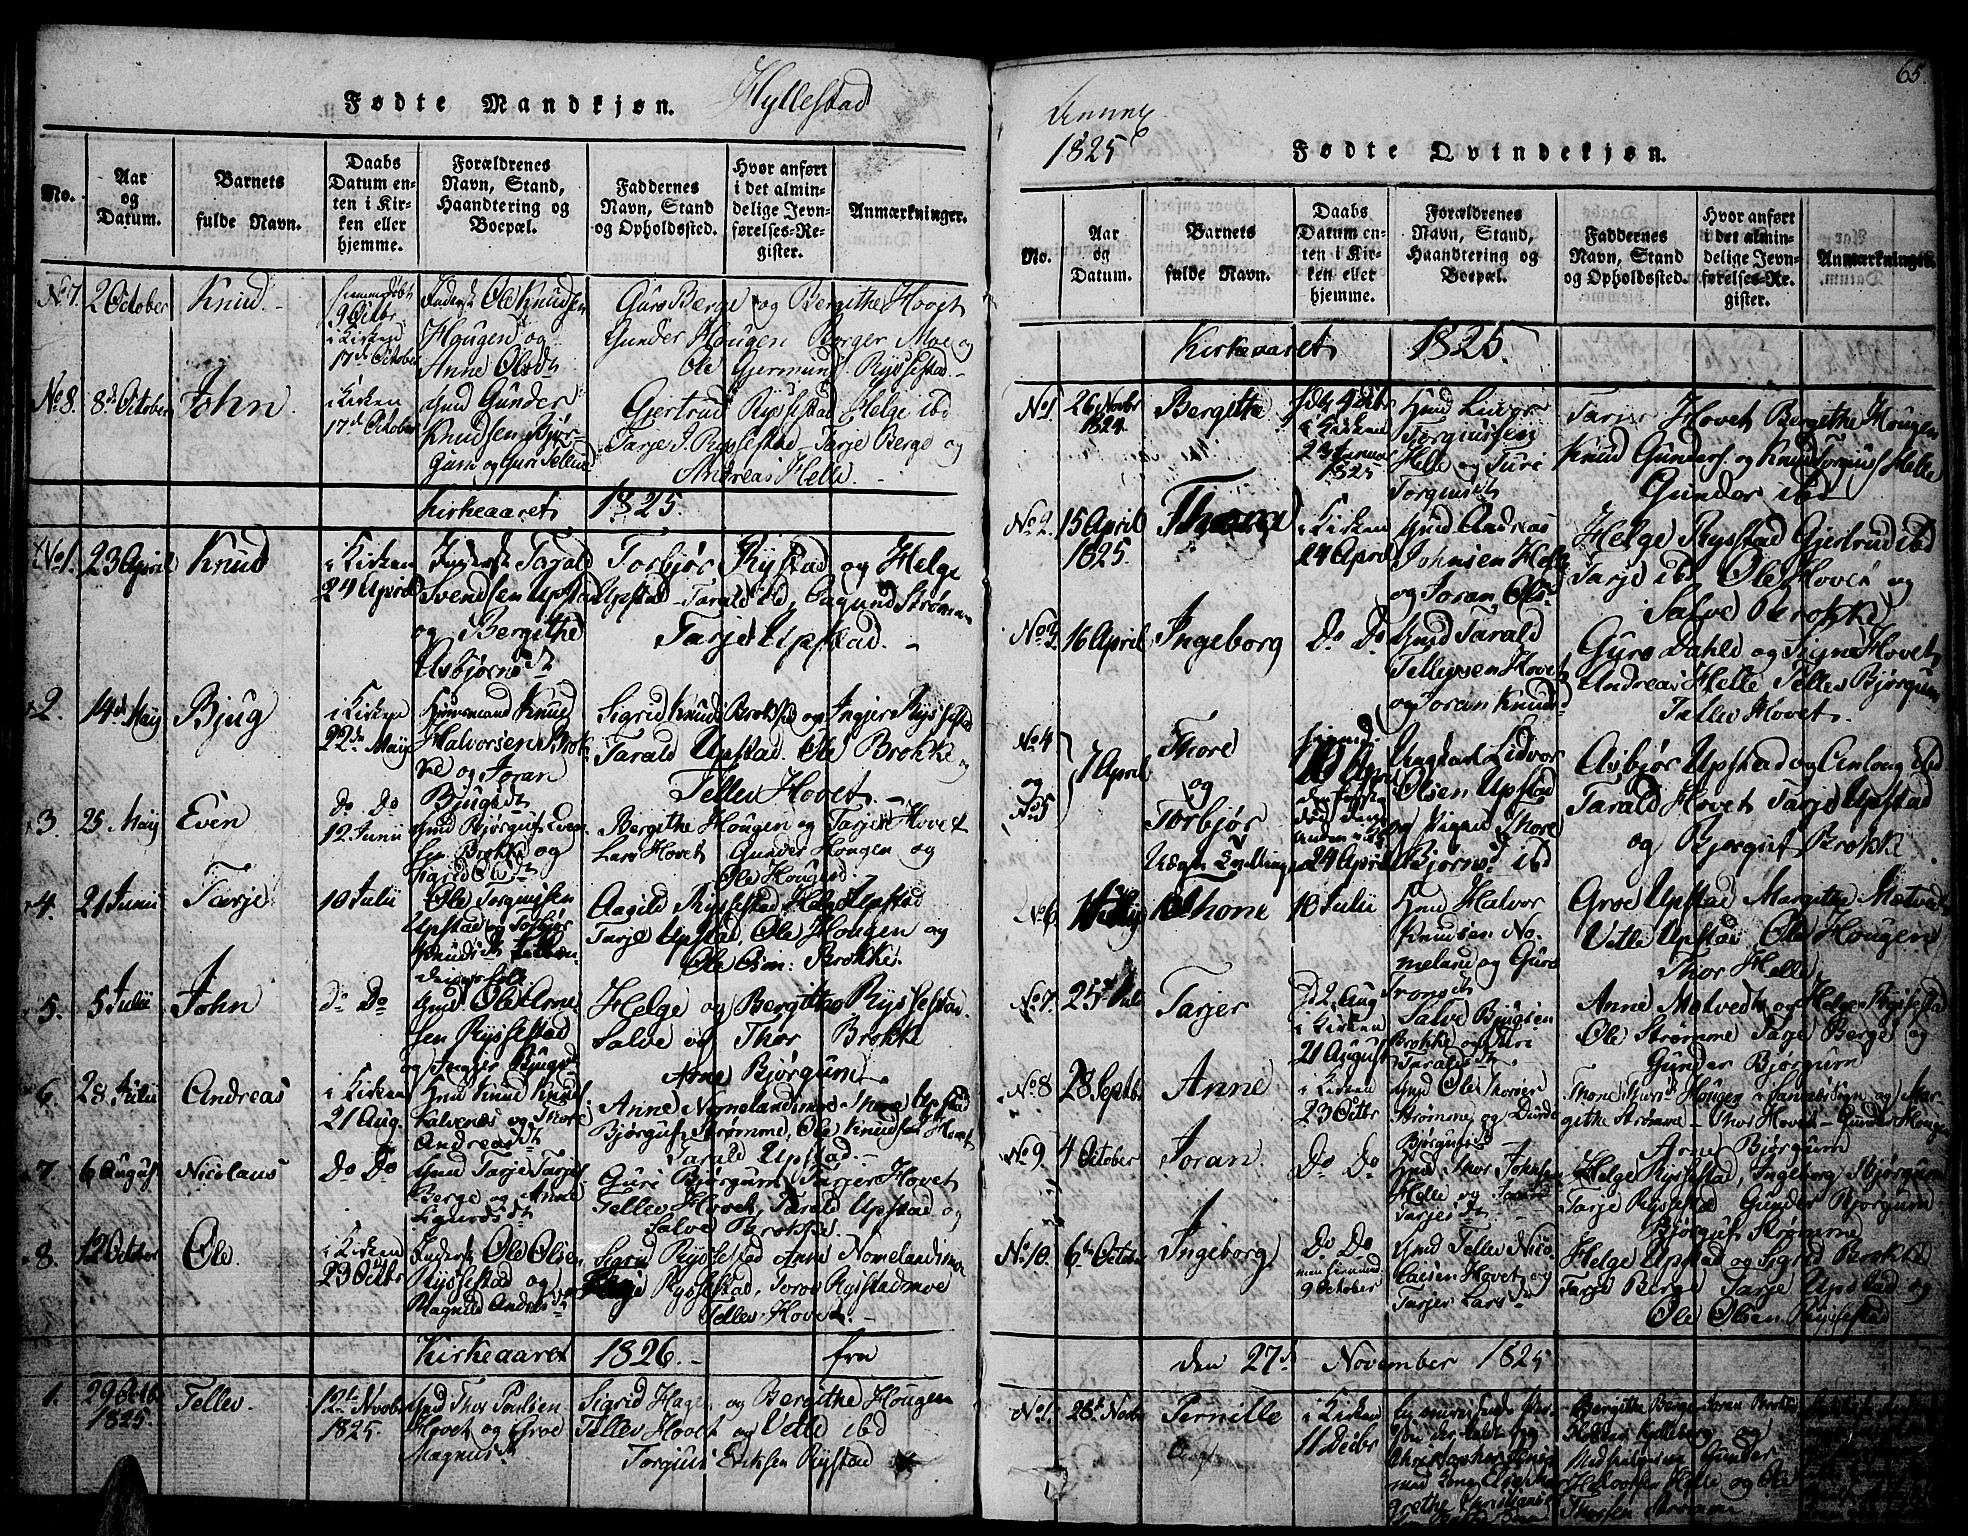 Fødte Mandkjøn.
Hyllestad
No.
Aar
og
Datum.
Barnets
fulde Navn.
Daabs
Datum en-
ten i Kir-
ken eller
hjemme.
Forældrenes
Navn, Stand,
Haandtering og
Boepæl.
Faddernes
Navn, Stand
og Opholdssted.
Hvor anført
i det almin-
delige Jevn-
førelses-Re-
gister.
Anmærkninger.
No 7. 2 October
Knud
hjemmedøbt
9 Octbr
i Kirken
17de October
Ole Knudsen
Hougen og
Anne Olsdt
Guro Berge og Bergithe Hovet
Gunder Hougen Borger Moe og
Ole Gjermunds Ryssestad
No 8. 8de October
John
i Kirken
17de October
Gmd Gunder
Knudsen Bjør-
gum og Guri Tellevs
Gjertrud Ryssestad Helge ibd
Tarje J. Ryssestad Tarje Berge og
Andreas Helle.
Kirkeaaret 1825.
No 1. 23 April
Knud
i Kirken
24 April
Tarald
Svendsen Upstad
og Bergithe
Asbjørnsdt
Torbjør Rystad og Helge
Upstad Tarald ibd, Aagund Strømme
Tarje Upstad.
2. 14de Maij
Bjug
i Kirken
22de Maij
Huusmand Knud
Halvorsen Brok-
ke og Joran
Bjugsdt
Sigrid Knuds Brokke og Ingjer Ryssestad
Tarald Upstad. Ole Brokke og
Tellev Hovet
3. 25 Maij
Even
Do Do
12 Junii
Gmd Bjørguf Even-
sen Brokke og
Sigrid Olsdt
Bergithe Hougen og Tarjer Hovet
Lars Hovet Gunder Hougen og
Ole Hougen
4. 21 Junii
Tarje
10 Julii
Ole Torgiussen
Upstad og Torbjør
Knudsdt
Aagild Ryssestad Helge Upstad
Tarje Upstad, Ole Hougen og
Ole Osm: Brokke.
5. 5 Julii
John
Do Do
Gmd Ole Arne-
sen Ryssestad
og Ingjer Bjugsdt
Helge og Bergithe Ryssestad.
Salve og Thor Brokke
Arne Bjørgum
6. 28 Julii
Andreas
i Kirken
21 Aug.
Gmd Knud Knud-
Kalvenæs og Thore
Andreasdt
Anne Nomelandsmoe Thore Upstad
Bjørguf Strømme, Ole Knudsen Hovet
Tarald Upstad.
7. 6 August
Nicolaus
Do Do
Gmd Tarje Tarjes-
Berge og Anne
Sigurdsdt
Guri Bjørgum Tarjer Hovet
Tellev Hovet, Tarald Upstad og
Salve Brokke.
8. 12 October
Ole.
i Kirken
23 Octbr
Ole Olsen
Ryssestad og
Ragnild Andreasdt
Sigrid Ryssestad Anne Nomelandsmoe
Ryssestad, Toros Rystadmoe
Tellev Hovet.
Kirkeaaret 1826. fra
1. 29 Octb.
1825.
Tellev.
12te Novbr
1825.
Gmd Thor Poulsen
Hovet og Groe
Magnusdt
Sigrid Hage og Bergithe Hougen
Tellev Hovet og Vetle ibd
Torgius Eriksen Rystad
65
Anno
1825
Fødte Qvindekjøn.
No.
Aar
og
Datum.
Barnets
fulde Navn.
Daabs
Datum en-
ten i Kir-
ken eller
hjemme.
Forældrenes
Navn, Stand,
Haandtering og
Boepæl.
Faddernes
Navn, Stand
og Opholdssted.
Hvor anført
i det almin-
delige Jevn-
førelses-Re-
gister.
Anmærkninger.
Kirkeaaret 1825.
No 1 26 Novbr
1824.
Bergithe
i Kirken
23 Januar
1825
Gmd Lidvor
Torgiussen
Helle og Turi
Torgiusdt
Tarje Hovet Bergithe Hougen
Knud Gunders og Knud Torgius Helle
Gunder ibd
No 2. 15 April
1825.
Thone
i Kirken
24 April
Gmd Andreas
Johnsen Helle
og Joran Olsdt
Helge Rystad Gjertrud ibd
Tarje ibd Ole Hovet og
Salve Brokke
No 3 16 April
Ingeborg
Do Do
Gmd Tarald
Tellevsen Hovet
og Joran Knudsdt
Guro Dahle og Signe Hovet
Andreas Helle Tellev Bjørgum
Tellev Hovet.
No 4
og
No 5
7 April
Thore
og
Torbjør
Uægte Tvillinge
24 April
Ungkarl Lidvor
Olsen Upstad
og Pigen Thore
Bjørnsdt ibd
Asbjør Upstad og Anlaug ibd
Tarald Hovet Tarje Upstad
og Bjørguf Brokke
No 6. 1 Julij
Thone
10 Julii
Gmd Halvor
Knudsen No-
meland og Guro
Tronsdt
Groe Upstad Margithe
Vetle Upstad Ole Hougen
Thor Helle
No 7. 25 Juli
Tarjer
2 Aug
i Kirken
21 August
Salve Bjugsen
Brokke og Turi
Taralsdt
Anne og Helge Ryssestad
Ole Strømme Tarje Berge og
Gunder Bjørgum
No 8 28 Septbr
Anne
i Kirken
23 Octbr
Gmd Ole Thorsen
Strømme og Durde
Bjørgufsdt
Thone Hougen og Mar-
githe Strømme Thor Hovet Gunder Hougen
Arne Bjørgum
No 9. 4 October
Joran.
Do Do
Gmd Thor Johnsen
Helle og
Tarjesdt
Helge Ryssestad, Ingeborg Bjørgum
Tarje Ryssestad Gunder Bjørgum
Bjørguf Strømme
No 10. 6te October
Ingeborg
Do Do
men hjemmed
9 October
Gmd Tellev Nico-
laisen Hovet og
Tarjer Larsdt
Helge Upstad og Sigrid Brokke
Tarje Berge Tarje Upstad og
Ole Olsen Ryssestad
den 27de November 1825
No 1. 28de Novbr
Pernille
i Kirken
11 Decbr
Bergithe Berge Joran
og
Gunder
Halvorsen Helle og
Thorsen Strømme